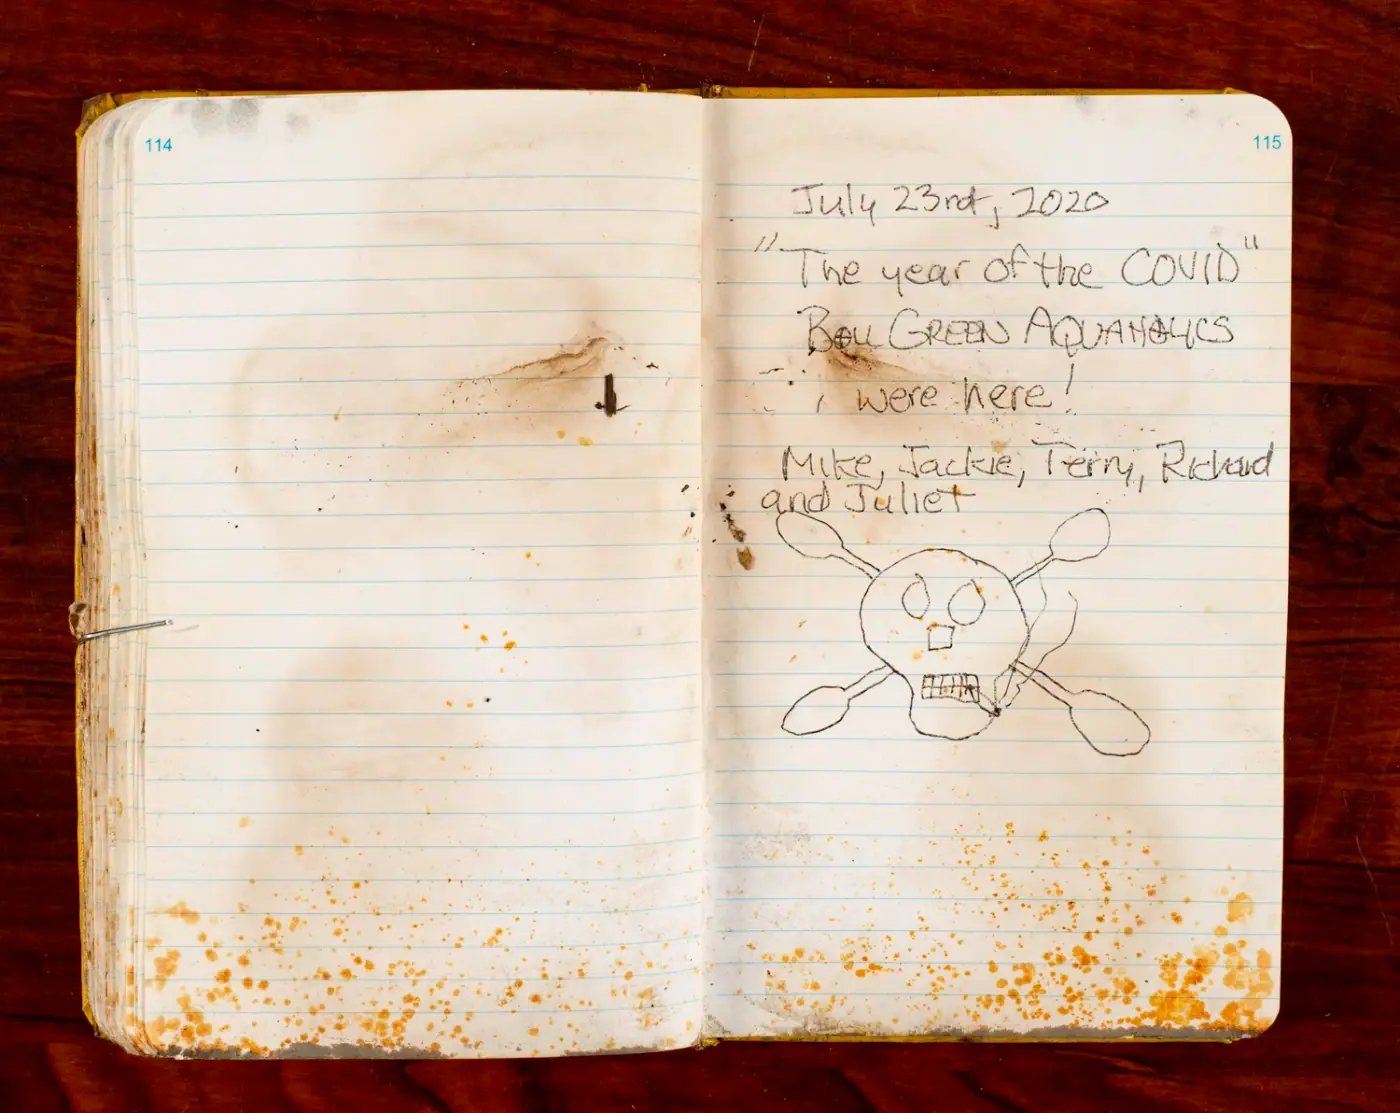 114
115
July 23rd, 2020
"The year of the COVID"
BALL GREEN AQUAHOLICS
were here!
Mike, Jackie, Terry, Richard
and Juliet